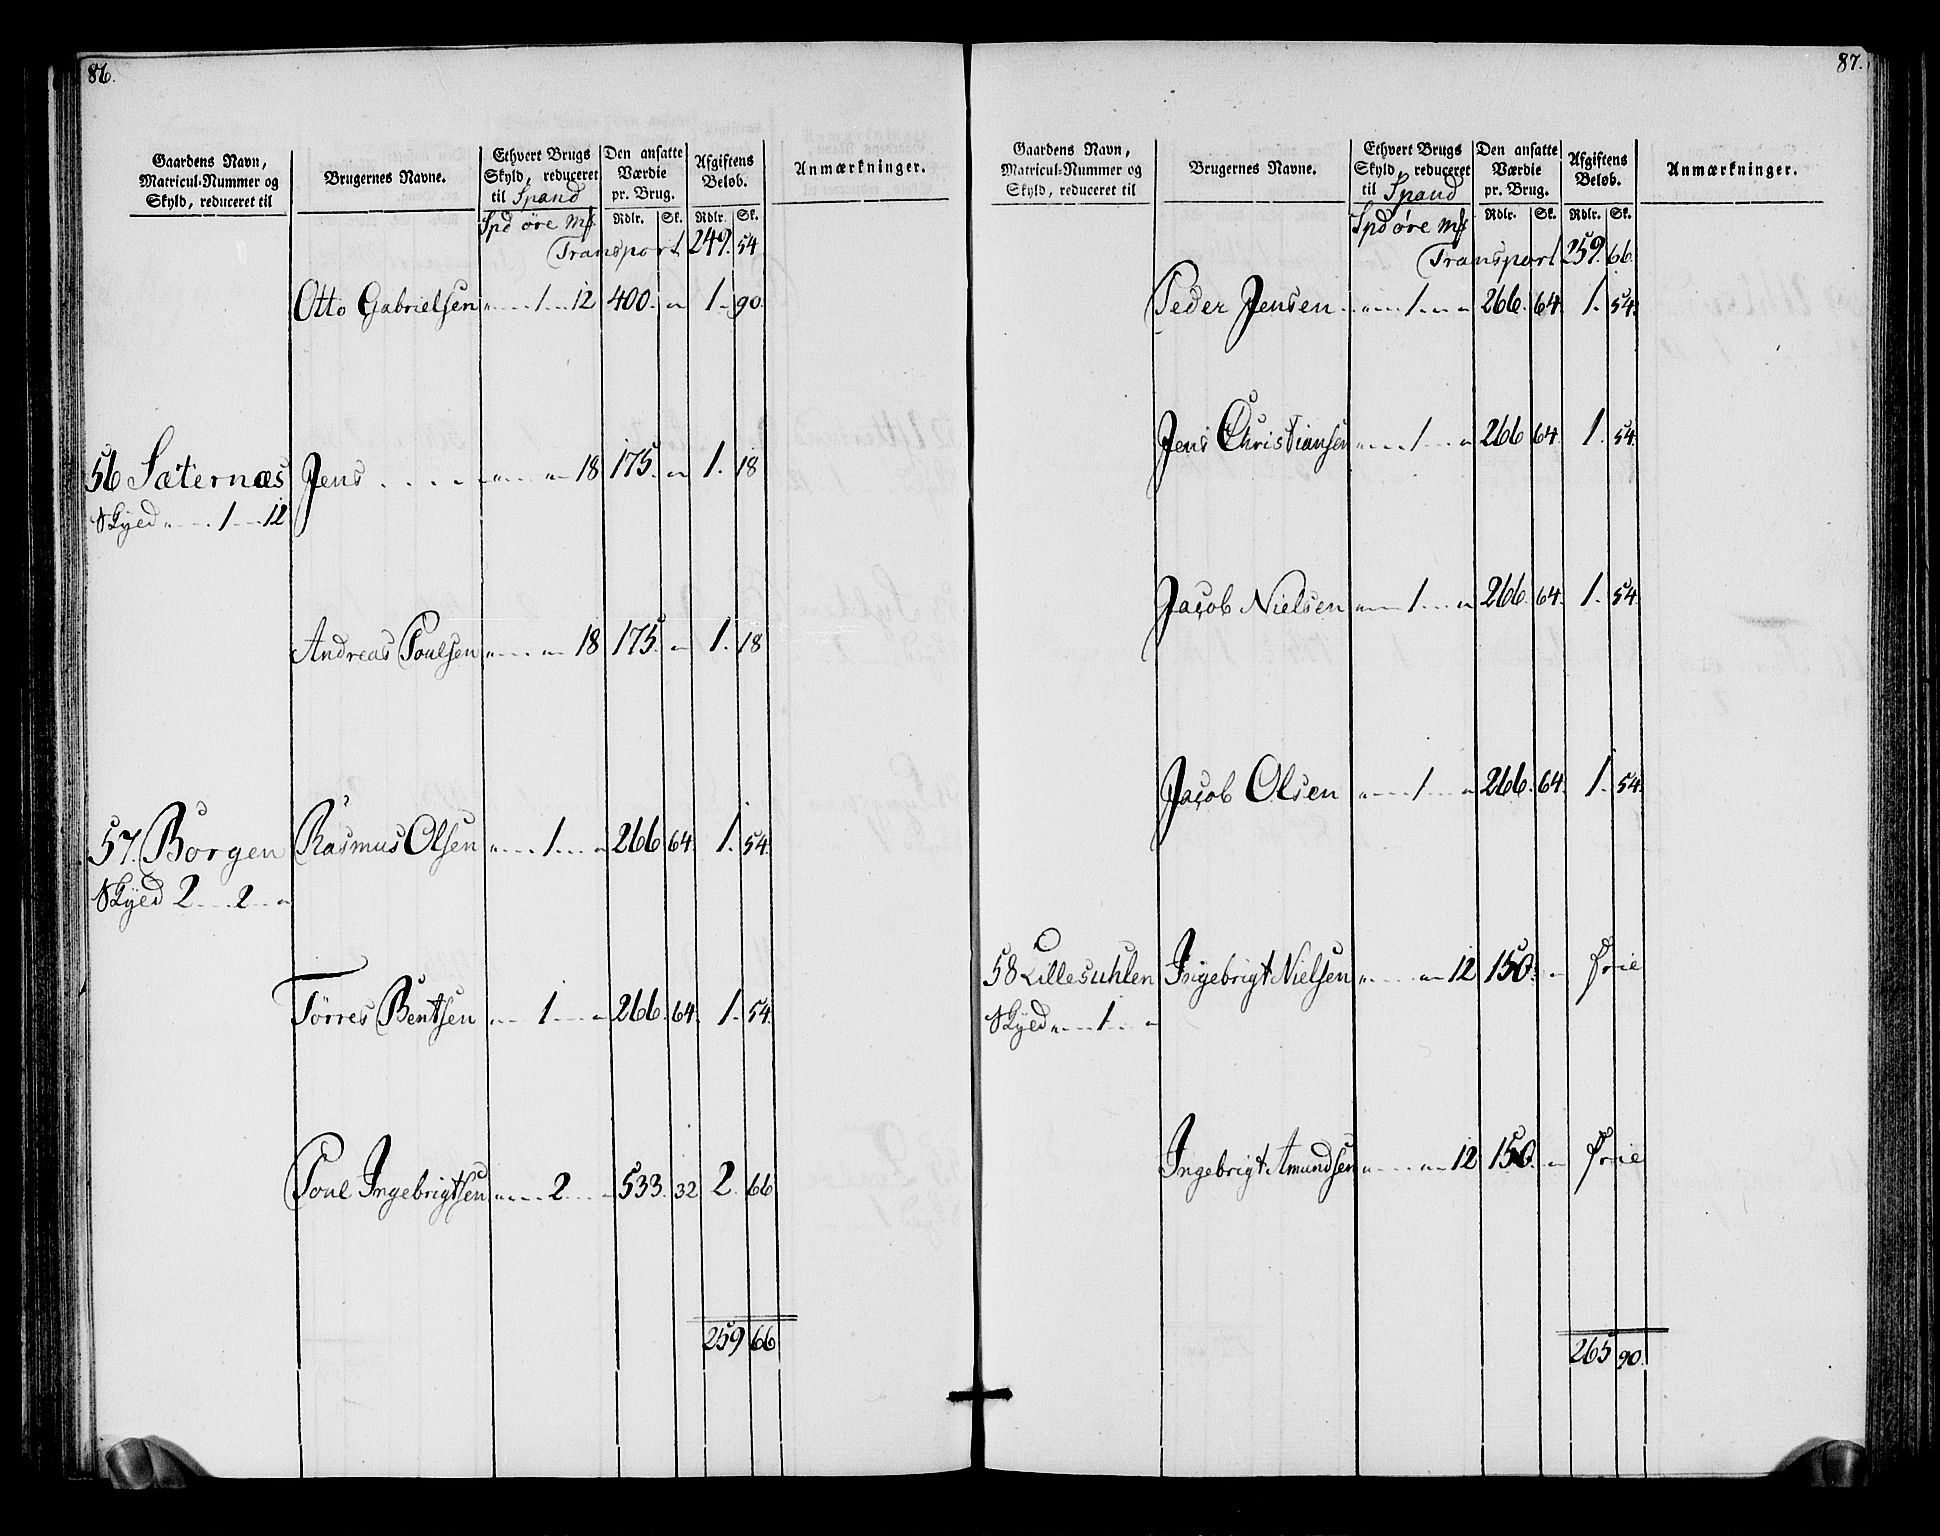 86.
Gaardens Navn, Matricul-Nummer og Skyld, reduceret til
Brugernes Navne.
Ethvert Brugs Skyld, reduceret til Spand
Den ansatte Værdie pr. Brug.
Afgiftens Beløb.
Anmærkninger.
Spd øre mk Rdlr. Sk. Rdlr. Sk.
Transport 249. 54
Otto Gabrielsen " 1 12 400. " 1. 90.
56 Sæternæs Jens . . . . " " 18 175. " 1. 18
Skyld " 1 12
Andreas Poulsen " " 18 175. " 1. 18
57. Borgen Rasmus Olsen " 1 " 266 64. 1. 54.
Skyld 2 2 "
Tørres Bentsen " 1 " 266. 64. 1. 54.
Poul Ingebrigtsen " 2 533. 32 2. 66
259 66
87.
Gaardens Navn, Matricul-Nummer og Skyld, reduceret til
Brugernes Navne.
Ethvert Brugs Skyld, reduceret til Spand
Den ansatte Værdie pr. Brug.
Afgiftens Beløb.
Anmærkninger.
Spd øre mk Rdlr. Sk. Rdlr. Sk.
Transport 259. 66.
Peder Jensen " 1 " 266. 64. 1. 54.
Jens Christiansen " 1 " 266 64. 1. 54.
Jacob Nielsen " 1 " 266. 64. 1. 54.
Jacob Olsen " 1 " 266. 64. 1. 54.
58 Lillesuhlen Ingebrigt Nielsen " " 12 150. " frie
Skyld " 1 "
Ingebrigt Amundsen " " 12 150. " frie
265 90.